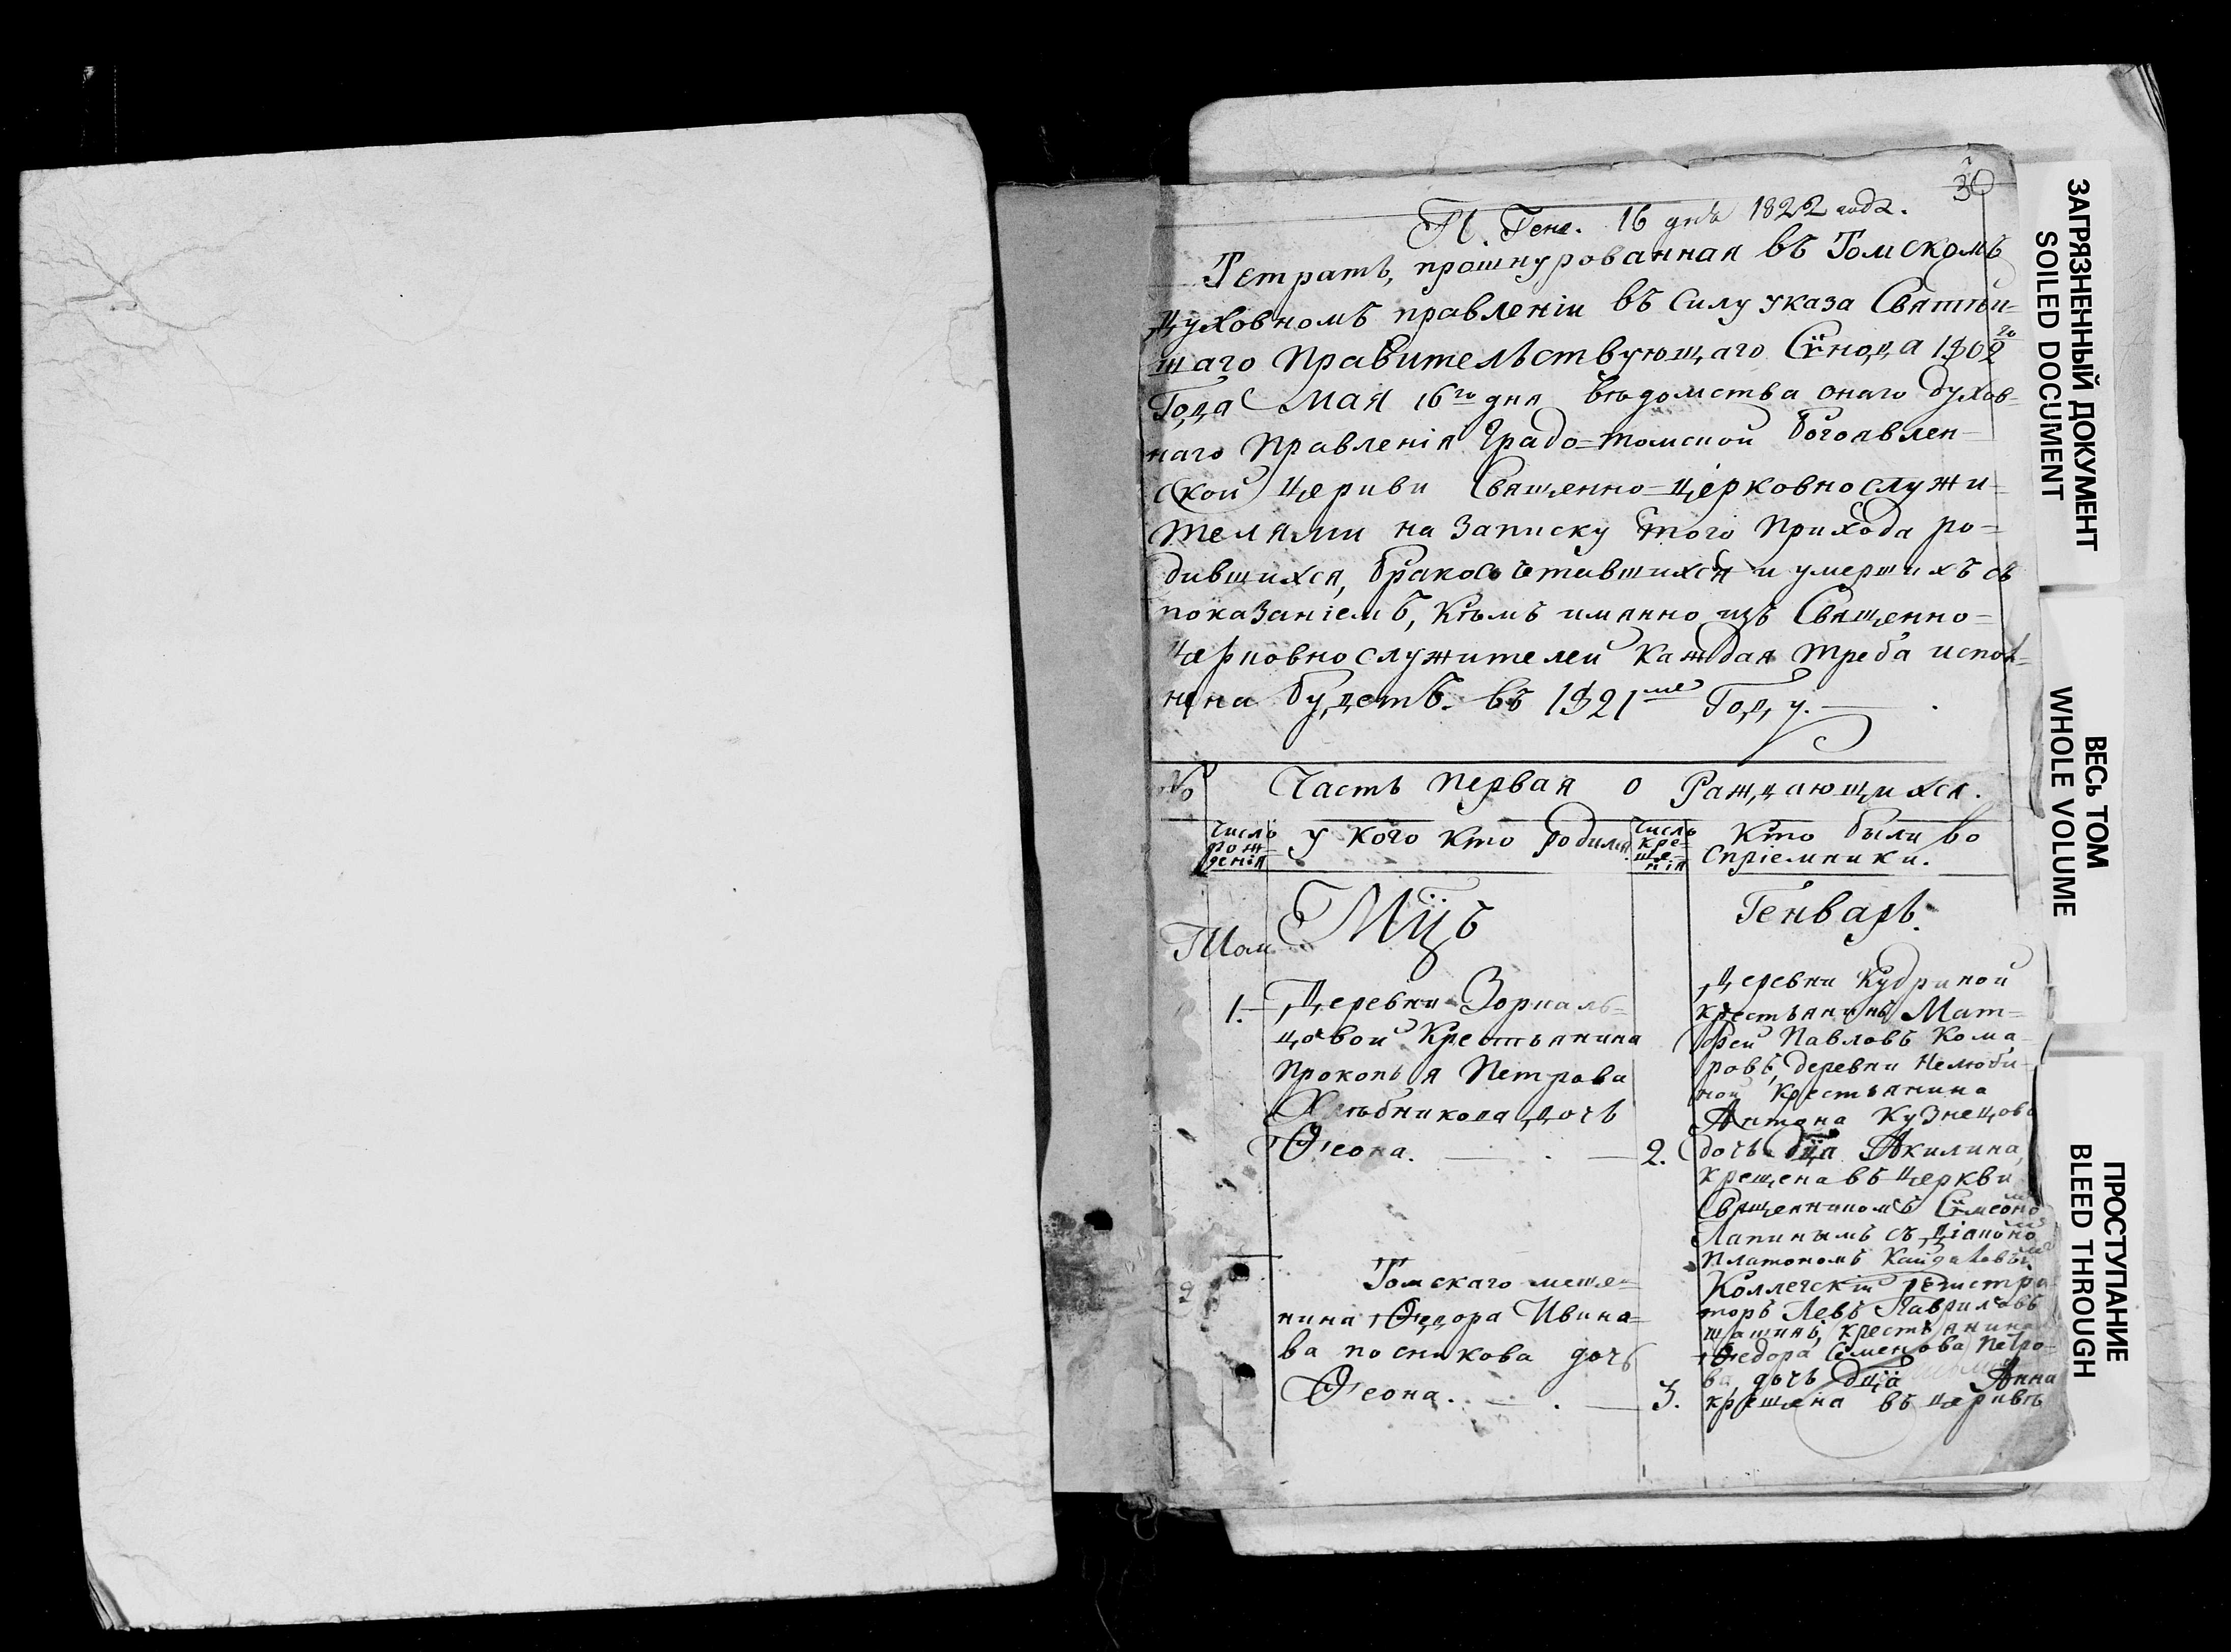 30
П. Генв. 16 дня 1822 года.
Тетрать, прошнурованная въ Томскомъ
духовномъ правленіи въ силу указа Святѣй-
шаго Правительствующаго Сѵнода 1802го
Года Мая 16го дня вѣдомства онаго духов-
наго Правленія Градо=томской богоявлен-
ской Церкви Священно-церковнослужи-
телями на записку того прихода ро-
дившихся, бракосочетавшихся и умершихъ съ
показаніемъ, кѣмъ имянно изъ Священно=
Церковнослужителей каждая треба испол=
нена будетъ. въ 1821мъ Году.
№ Часть первая о Раждающихся.
Число рож-денія
у кого кто родился
Число кре-ще-нія
Кто были во
спріемники.
Мцъ
Генварь.
1.
Деревни Зоркаль=
цовой Крестьянина
Прокопья Петрова
Хлѣбникова дочь
Ѳеона.
2.
Деревни Кудриной
крестьянинъ Мат=
фей Павловъ Кома
ровъ, деревни Нелюби-
ной крестьянина
Антона Кузнецова
дочь дца Акилина,
крещена въ Церкви
Священникомъ Сѵмеоно
Лапинымъ съ діаконо
Платономъ Кайдаловы
2
Томскаго меще=
нина Ѳедора Ивана=
ва посникова дочь
Ѳеона.
3.
Коллегскій регистра
торъ Левъ Гавриловъ
крестьянина
Ѳедора Семенова Петро-
ва дочь дца Анна
крещена въ церквѣ
ЗАГРЯЗНЕННЫЙ ДОКУМЕНТ
SOILED DOCUMENT
ВЕСЬ ТОМ
WHOLE VOLUME
ПРОСТУПАНИЕ
BLEED THROUGH